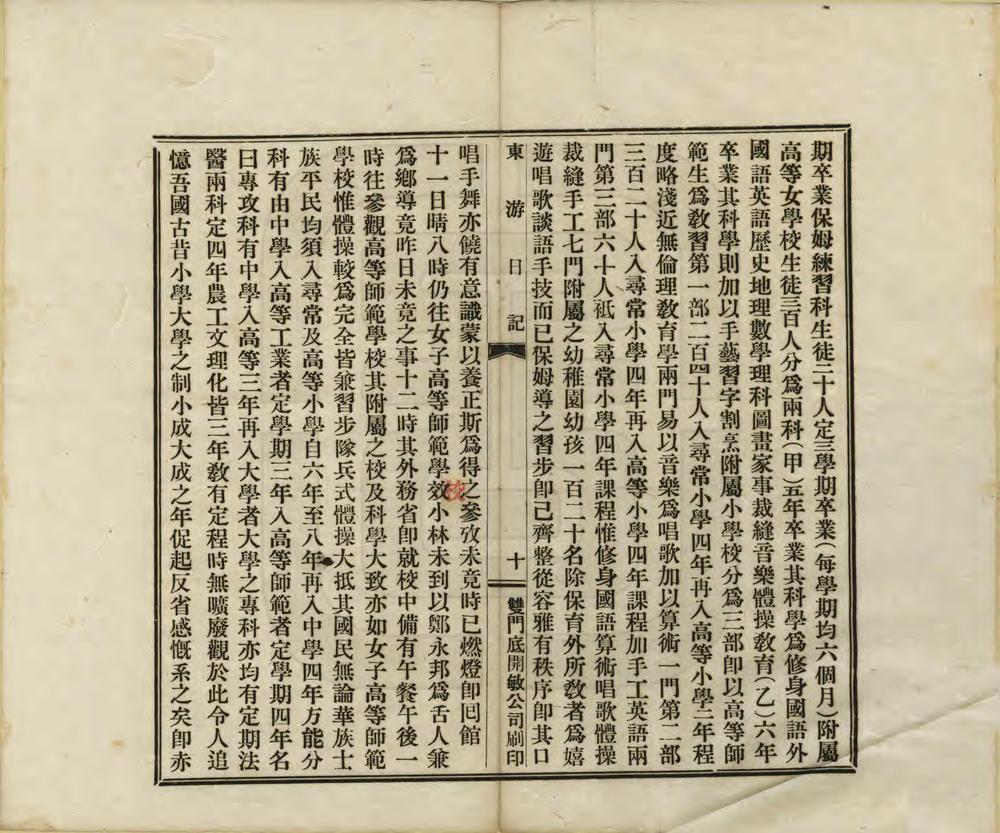 期卒業保姆練習科生徒三十人定三學期卒業(每學期均六個月)附屬
高等女學校生徒三百人分爲兩科(甲)五年卒業其科學爲修身國語外
國語英語歷史地理數學理科圖畫家事裁縫音樂體操敎育(乙)六年
卒業其科學則加以手藝習字割烹附屬小學校分爲三部卽以高等師
範生爲敎習第一部二百四十人入尋常小學四年再入高等小學二年程
度略淺近無倫理敎育學兩門易以音樂爲唱歌加以算術一門第二部
三百二十人入尋常小學四年再入高等小學四年課程加手工英語兩
門第三部六十人祗入尋常小學四年課程惟修身國語算術唱歌體操
裁縫手工七門附屬之幼稚園幼孩一百二十名除保育外所敎者爲嬉
遊唱歌談語手技而已保姆導之習步卽已齊整從容雅有秩序卽其口
東游日記 十 雙門底開敏公司刷印
唱手舞亦饒有意識蒙以養正斯爲得之參攷未竟時已燃燈卽回館
十一日晴八時仍往女子高等師範學效校小林未到以鄭永邦爲舌人兼
爲鄉導竟昨日未竟之事十二時其外務省卽就校中備有午餐午後一
時往參觀高等師範學校其附屬之校及科學大致亦如女子高等師範
學校惟體操較爲完全皆兼習步隊兵式體操大抵其國民無論華族士
族平民均須入尋常及高等小學自六年至八年再入中學四年方能分
科有由中學入高等工業者定學期三年入高等師範者定學期四年名
曰專攻科有中學入高等三年再入大學者大學之專科亦均有定期法
醫兩科定四年農工文理化皆三年敎有定程時無曠廢觀於此令人追
憶吾國古昔小學大學之制小成大成之年促起反省感慨系之矣卽亦